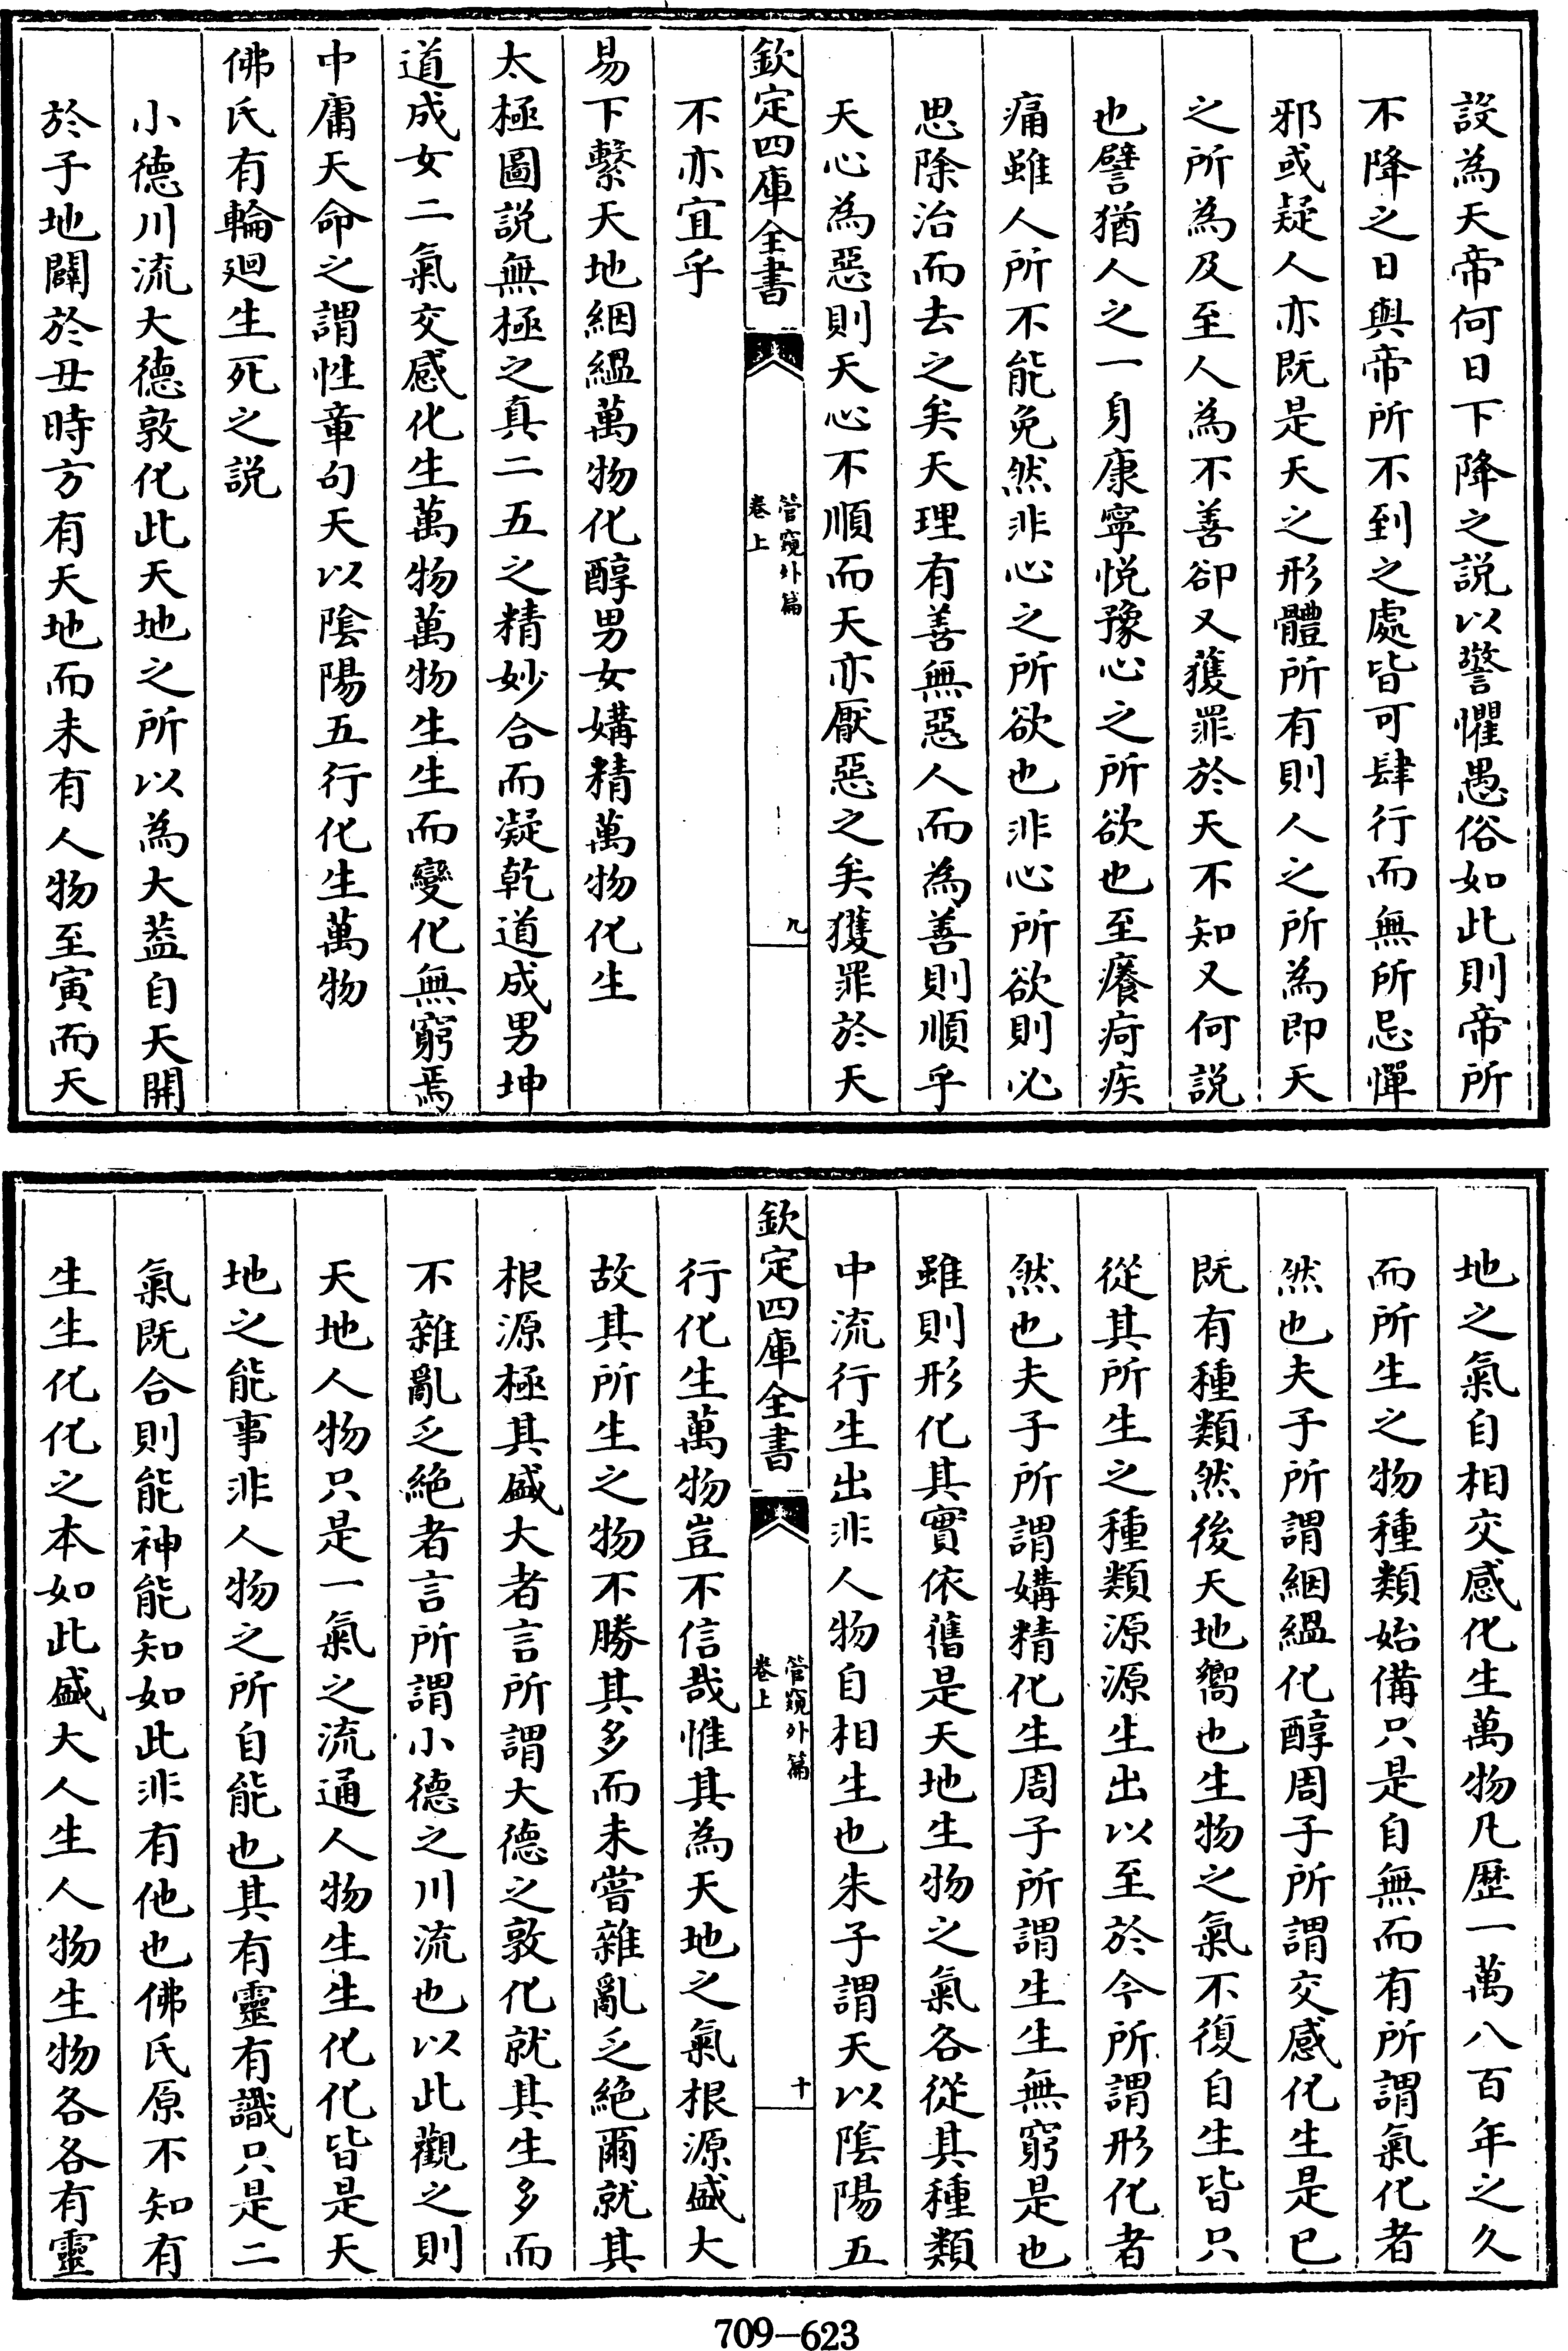 設為天帝何日下降之説以警懼愚俗如此則帝所
不降之日與帝所不到之處皆可肆行而無所忌憚
邪或疑人亦既是天之形體所有則人之所為即天
之所為及至人為不善卻又獲罪於天不知又何説
也譬猶人之一身康寧悦豫心之所欲也至癢疴疾
痛雖人所不能免然非心之所欲也非心所欲則必
思除治而去之矣天理有善無惡人而為善則順乎
天心為惡則天心不順而天亦厭惡之矣獲罪於天
欽定四庫全書
管窺外篇
卷上
九
不亦宜乎
易下繫天地絪縕萬物化醇男女媾精萬物化生
太極圖説無極之真二五之精妙合而凝乾道成男坤
道成女二氣交感化生萬物萬物生生而變化無窮焉
中庸天命之謂性章句天以陰陽五行化生萬物
佛氏有輪廻生死之説
小德川流大德敦化此天地之所以為大蓋自天開
於子地闢於丑時方有天地而未有人物至寅而天
地之氣自相交感化生萬物凡歷一萬八百年之久
而所生之物種類始備只是自無而有所謂氣化者
然也夫子所謂絪縕化醇周子所謂交感化生是已
既有種類然後天地嚮也生物之氣不復自生皆只
從其所生之種類源源生出以至於今所謂形化者
然也夫子所謂媾精化生周子所謂生生無窮是也
雖則形化其實依舊是天地生物之氣各從其種類
中流行生出非人物自相生也朱子謂天以陰陽五
欽定四庫全書
管窺外篇
卷上
十
行化生萬物豈不信哉惟其為天地之氣根源盛大
故其所生之物不勝其多而未嘗雜亂乏絶爾就其
根源極其盛大者言所謂大德之敦化就其生多而
不雜亂乏絶者言所謂小德之川流也以此觀之則
天地人物只是一氣之流通人物生生化化皆是天
地之能事非人物之所自能也其有靈有識只是二
氣既合則能神能知如此非有他也佛氏原不知有
生生化化之本如此盛大人生人物生物各各有靈
709-623